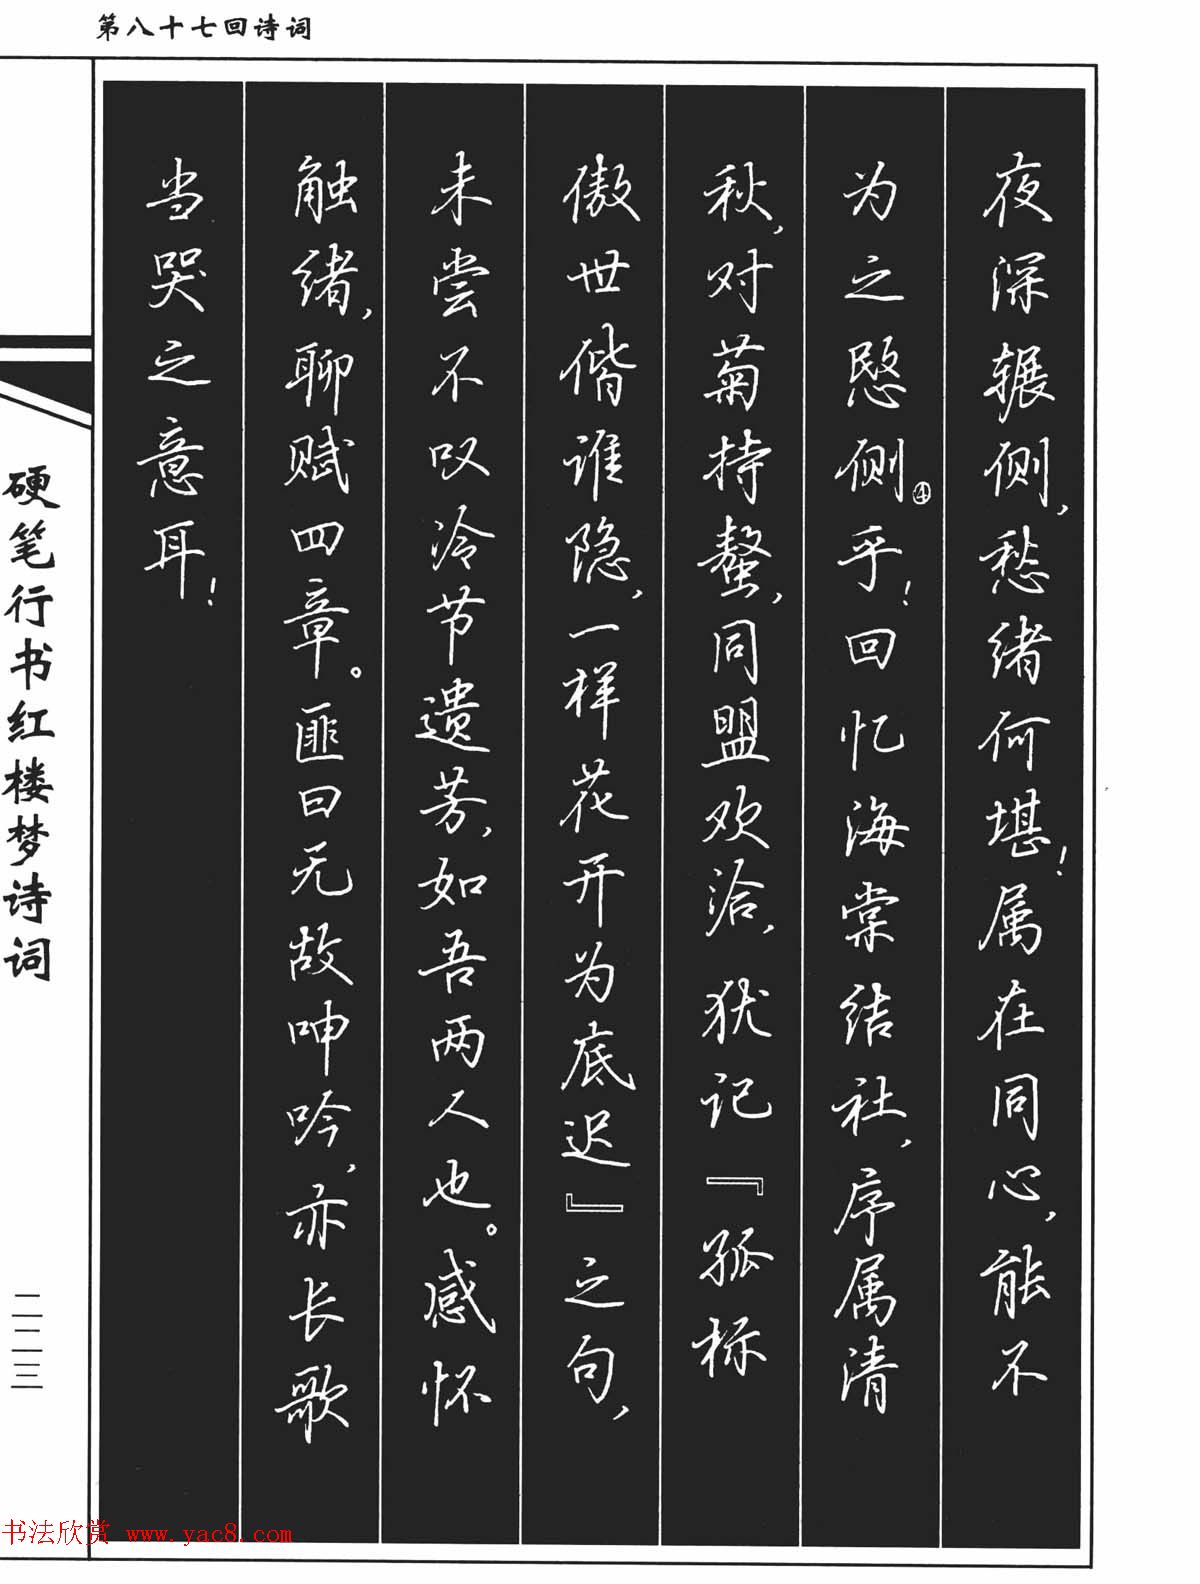 第八十七回诗词
夜深辗侧，愁绪何堪！属在同心，能不
为之愍侧④乎！回忆海棠结社，序属清
秋，对菊持螯，同盟欢洽，犹记『孤标
傲世偕谁隐，一样花开为底迟』之句，
未尝不叹冷节遗芳，如吾两人也。感怀
触绪，聊赋四章。匪曰无故呻吟，亦长歌
当哭之意耳！
硬笔行书红楼梦诗词
二二三
书法欣赏 www.yac8.com